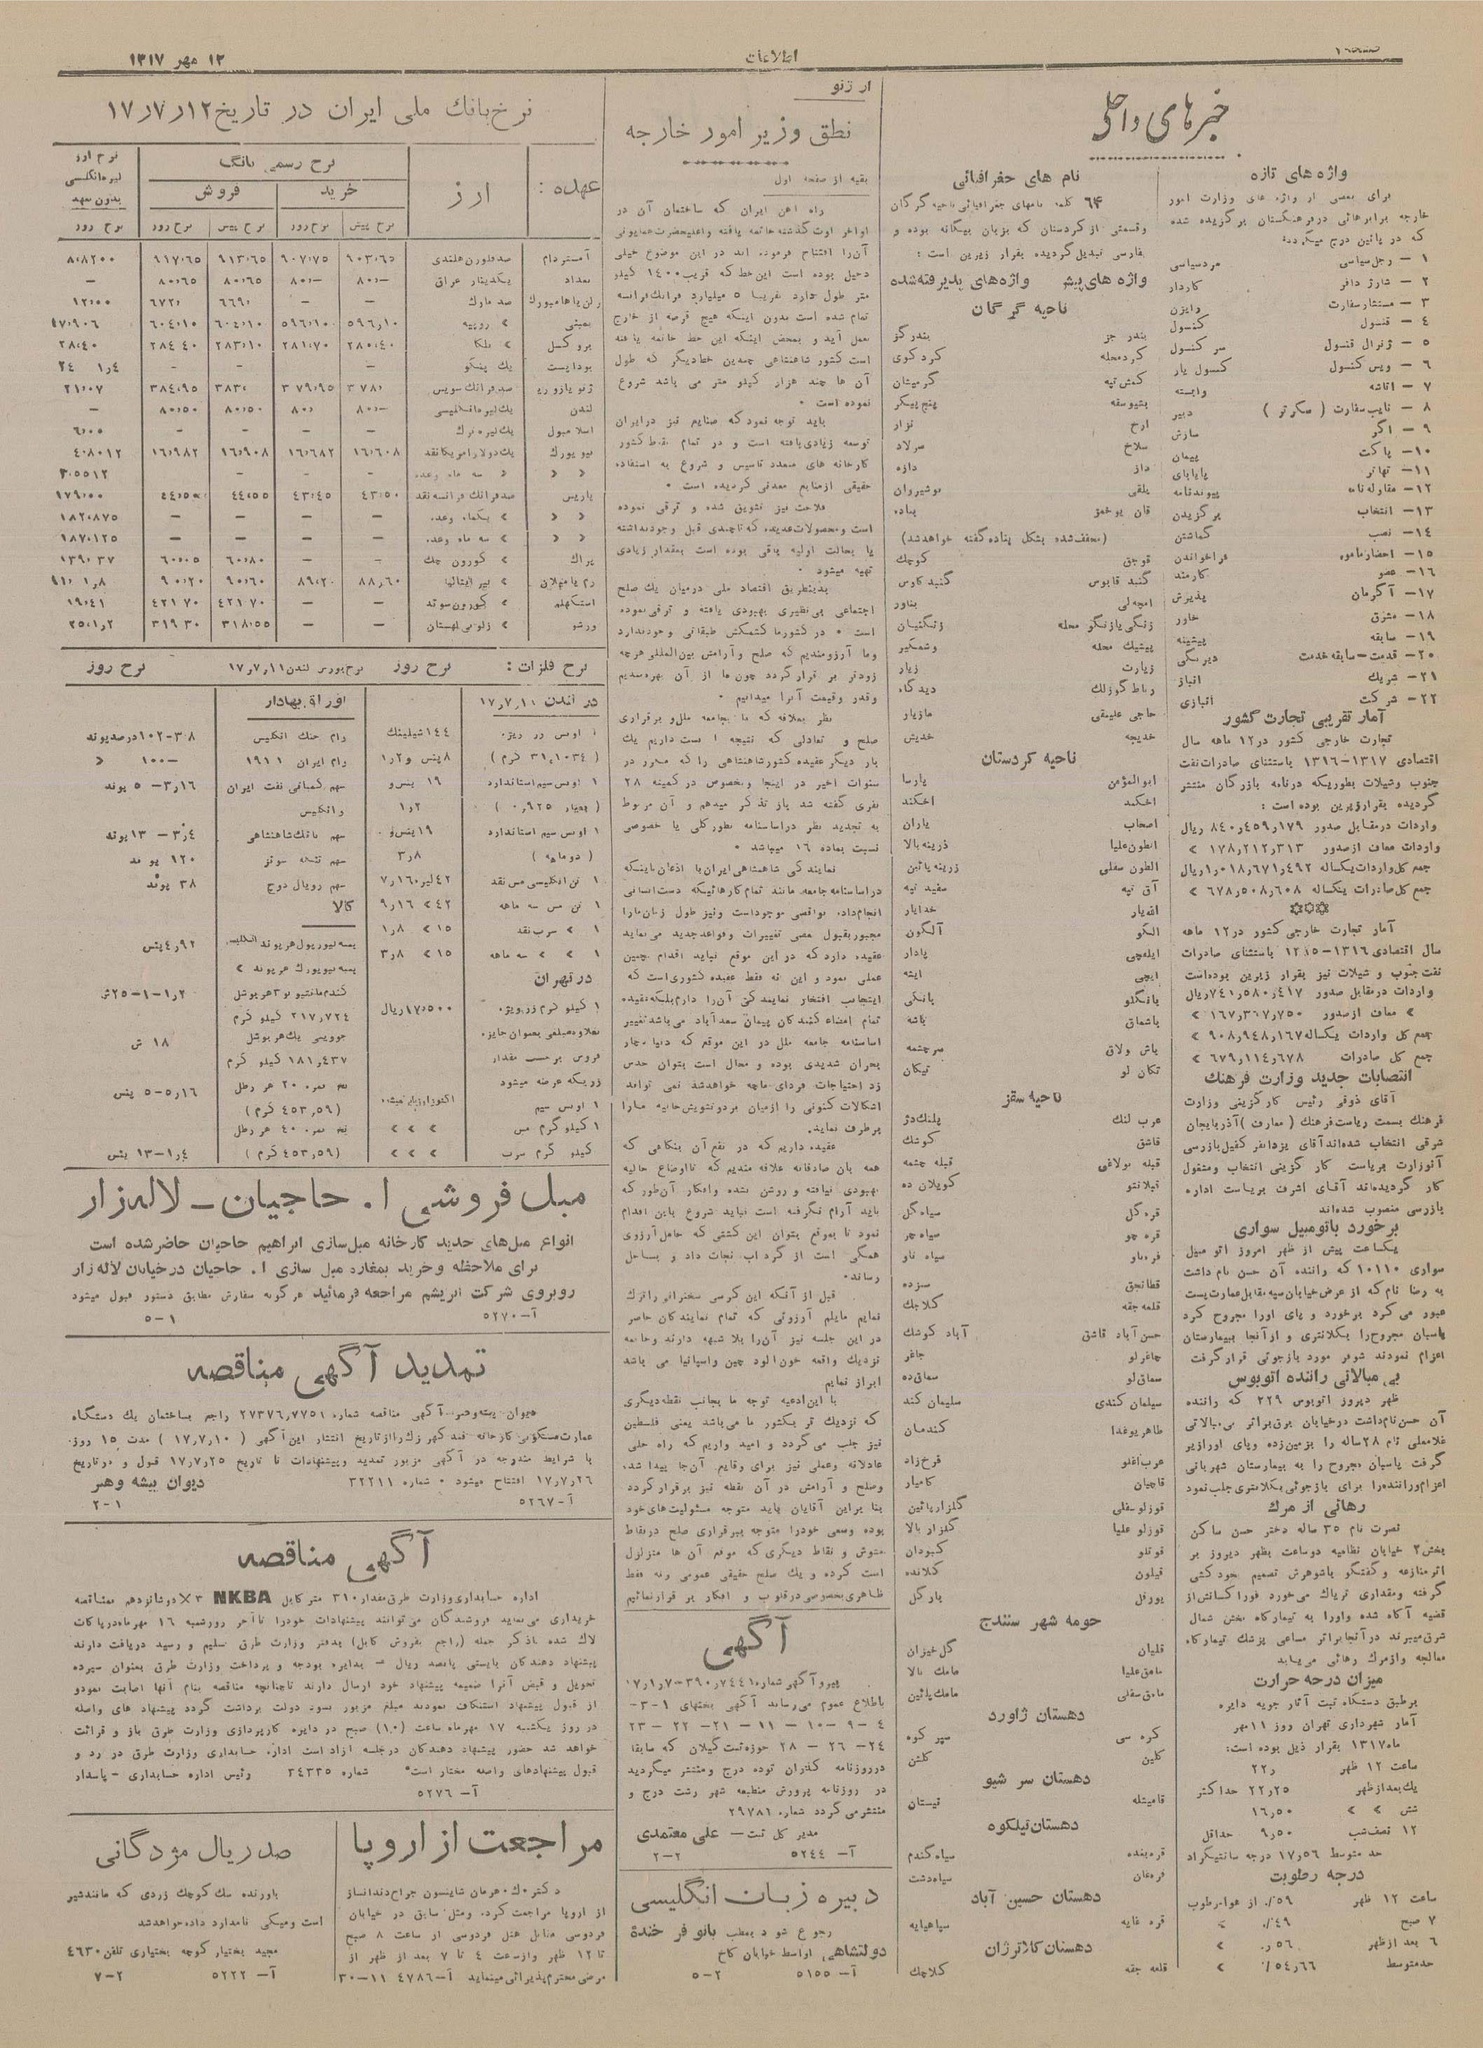 اطلاعات
۱۲ مهر ۱۳۱۷
خبرهای داخلی
واژه های تازه
برای بعضی از واژه های وزارت امور
خارجه برابرهائی در فرهنگستان برگزیده شده
که در پائین درج میگردد:
۱ – رجل سیاسی مرد سیاسی
۲ – شارژ دافر کاردار
۳ – مستشار سفارت رایزن
۴ – قنسول کنسول
۵ – ژنرال قنسول سر کنسول
۶ – ویس کنسول کنسول یار
۷ – آتاشه وابسته
۸ – نایب سفارت (سکرتر) دبیر
۹ – آگر سازش
۱۰ – پاکت پیمان
۱۱ – تهاتر پایاپای
۱۲ – مقاوله نامه پیوندنامه
۱۳ – انتخاب برگزیدن
۱۴ – نصب گماشتن
۱۵ – احضار مامور فراخواندن
۱۶ – عضو کارمند
۱۷ – آگرمان پذیرش
۱۸ – مشرق خاور
۱۹ – سابقه پیشینه
۲۰ – قدمت – سابقه خدمت دیرینگی
۲۱ – شریک انباز
۲۲ – شرکت انبازی
آمار تقریبی تجارت کشور
تجارت خارجی کشور در ۱۲ ماهه سال
اقتصادی ۱۳۱۷–۱۳۱۶ باستثنای صادرات نفت
جنوب و شیلات بطوریکه درنامه بازرگان منتشر
گردیده بقرار زیرین بوده است:
واردات در مقابل صدور ۸۴۰,۴۵۹,۱۷۹ ریال
واردات معاف از صدور ۱۷۸,۲۱۲,۳۱۳ »
جمع کل واردات یکساله ۱,۰۱۸,۶۷۱,۴۹۲ ریال
جمع کل صادرات یکساله ۶۷۸,۵۰۸,۶۰۸ »
آمار تجارت خارجی کشور در ۱۲ ماهه
سال اقتصادی ۱۳۱۶–۱۳۱۵ باستثنای صادرات
نفت جنوب و شیلات نیز بقرار زیرین بوده است
واردات در مقابل صدور ۷۴۱,۵۸۰,۴۱۷ ریال
» معاف از صدور ۱۶۷,۳۶۷,۷۵۰ »
جمع کل واردات یکساله ۹۰۸,۹۴۸,۱۶۷ »
جمع کل صادرات ۶۷۹,۱۱۴,۶۷۸ »
انتصابات جدید وزارت فرهنگ
آقای ذوقی رئیس کارگزینی وزارت
فرهنگ بسمت ریاست فرهنگ (معارف) آذربایجان
شرقی انتخاب شده اند آقای یزدانفر کفیل بازرسی
آنوزارت بریاست کارگزینی انتخاب و مشغول
کار گردیده اند آقای اشرف بریاست اداره
بازرسی منصوب شده اند
برخورد باتومبیل سواری
یکساعت پیش از ظهر امروز اتومبیل
سواری ۱۰۱۱۰ که راننده آن حسن نام داشت
به رضا نام که از عرض خیابان سپه مقابل عمارت پست
عبور می کرد برخورد و پای اورا مجروح کرد
پاسبان مجروح را بکلانتری و از آنجا ببیمارستان
اعزام نمودند شوفر مورد بازجوئی قرار گرفت
بی مبالاتی راننده اتوبوس
ظهر دیروز اتوبوس ۲۲۹ که راننده
آن حسن نام داشت درخیابان برق براثر بی مبالاتی
غلامعلی نام ۲۸ ساله را بزمین زده و پای اورا زیر
گرفت پاسبان مجروح را به بیمارستان شهربانی
اعزام و راننده را برای بازجوئی بکلانتری جلب نمود
رهائی از مرگ
نصرت نام ۳۵ ساله دختر حسن ساکن
بخش ۲ خیابان نظامیه دوساعت بظهر دیروز بر
اثر منازعه و گفتگو باشوهرش تصمیم خودکشی
گرفته و مقداری تریاک می خورد فورا کسانش از
قضیه آگاه شده واورا به تیمارگاه بخش شمال
شرق میبرند در آنجا براثر مساعی پزشک تیمارگاه
معالجه و از مرگ رهائی می یابد
میزان درجه حرارت
برطبق دستگاه ثبت آثار جویه دایره
آمار شهرداری تهران روز ۱۱ مهر
ماه ۱۳۱۷ بقرار ذیل بوده است:
ساعت ۱۲ ظهر ۲۲٫
یک بعد از ظهر ۲۲,۲۵ حداکثر
شش » » ۱۶,۵۰
۱۲ نصف شب ۹,۵۰ حداقل
حد متوسط ۱۷,۵۶ درجه سانتیگراد
درجه رطوبت
ساعت ۱۲ ظهر ۵۹٪ از هوا مرطوب
۷ صبح ۴۹٪ »
۶ بعد از ظهر ۵۶٪ »
حد متوسط ۵۴,۶۶٪ »
نام های جغرافیائی
۶۴ کلمه نامهای جغرافیائی ناحیه گرگان
وقسمتی از کردستان که بزبان بیگانه بوده و
بفارسی تبدیل گردیده بقرار زیرین است:
واژه های پیش واژه های پذیرفته شده
ناحیه گرگان
بندر جز بندر گز
کرد محله کرد کوی
گمش تپه گومیشان
سلاخ سرلاد
داز دازه
یلقی نوشیروان
پناده
(مخفف شده بشکل پناده گفته خواهد شد)
قوجق کوچک
گنبد قابوس گنبد کاوس
بناور
زنگی یازنگو محله زنگیان
پیشیک محله وشمگیر
زیارت زیار
رباط گوزلک دیدگاه
حاجی علیقلی مازیار
خدیجه خدیش
ناحیه کردستان
ابوالمؤمن پارسا
اصحاب یاران
آق تپه سفید تپه
الله یار خدایار
الکو آلگون
ایلچی
یاش ولاق سرچشمه
تکان لو تیکان
ناحیه سقز
عرب لنک پلنک دژ
قاشق کوشک
قبله بولاغی قبله چشمه
قپلانتو کوپلان ده
قره گل سیاه گل
قره چو سیاه چو
قره ناو سیاه ناو
قطانجق سزده
قلعه جقه کلاچک
حسن آباد قاشق آباد کوشک
چاغرلو چاغر
سماقلو سماق ده
سیلمان کندی سلیمان کند
طاهر بوغدا گندمان
عرب اغلو فرخ زاد
قاجیان کامیار
قوزلو سفلی گلزار پائین
قوزلو علیا گلزار بالا
قوتلو کبودان
قیلون کلانده
حومه شهر سنندج
قلیان گل خیزان
مامق علیا مامک بالا
مامق سفلی مامک پائین
دهستان ژاورد
کره سی سیر کوه
کلین کلشن
دهستان سرشیو
قامیشله نیستان
دهستان تیلکوه
قره بغده سیاه گندم
قره غان سیاه دشت
دهستان حسین آباد
قره غایه سیاهپایه
دهستان کلاترزان
قلعه جقه کلاچک
از ژنو
نطق وزیر امور خارجه
بقیه از صفحه اول
راه آهن ایران که ساختمان آن در
اواخر اوت گذشته خاتمه یافته واعلیحضرت همایونی
آن را افتتاح فرمودند اند در این موضوع خیلی
دخیل بوده است این خط که قریب ۱۴۰۰ کیلو
متر طول دارد تقریبا ۵ میلیارد فرانک فرانسه
تمام شده است بدون اینکه هیچ قرضه از خارج
بعمل آید و بمحض اینکه این خط خاتمه یافته
است کشور شاهنشاهی چندین خط دیگر که طول
آن ها چند هزار کیلو متر می باشد شروع
نموده است .
باید توجه نمود که صنایع نیز در ایران
توسعه زیادی یافته است و در تمام نقاط کشور
کارخانه های متعدد تاسیس و شروع به استفاده
حقیقی از منابع معدنی گردیده است .
فلاحت نیز تشویق شده و ترقی نموده
است و محصولات عدیده که تا چندی قبل وجود نداشته
یا بحالت اولیه باقی بوده است بمقدار زیادی
تهیه میشود .
بدینطریق اقتصاد ملی درمیان یک صلح
اجتماعی بی نظیری بهبودی یافته و ترقی نموده
است . در کشور ما کشمکش طبقاتی وجود ندارد
وما آرزومندیم که صلح و آرامش بین المللی هرچه
زودتر بر قرار گردد چون ما از آن بهره مندیم
وقدر وقیمت آنرا میدانیم .
نظر بعلاقه که ما بجامعه ملل و برقراری
صلح و تعادلی که نتیجه آنست داریم یک
بار دیگر عقیده کشور شاهنشاهی را که مکرر در
سنوات اخیر در اینجا و بخصوص در کمیته ۲۸
نفری گفته شد باز تذکر میدهم و آن مربوط
به تجدید نظر در اساسنامه بطور کلی یا خصوصی
نسبت بماده ۱۶ میباشد .
نمایندگی شاهنشاهی ایران با اذعان باینکه
در اساسنامه جامعه مانند تمام کارهائیکه دست انسانی
انجام داده نواقصی موجود است ونیز طول زمان مارا
مجبور بقبول بعضی تغییرات و قواعد جدید می نماید
عقیده دارد که در این موقع نباید اقدام بچنین
عملی نمود و این نه فقط عقیده کشوری است که
اینجانب افتخار نمایندگی آن را دارم بلکه عقیده
تمام امضاء کنندگان پیمان سعدآباد می باشد تغییر
اساسنامه جامعه ملل در این موقع که دنیا دچار
بحران شدیدی بوده و محال است بتوان حدس
زد احتیاجات فردای ما چه خواهد شد نمی تواند
اشکالات کنونی را از میان برد و تشویش حالیه مارا
برطرف نماید.
عقیده داریم که در نفع آن بنگاهی که
همه بآن صادقانه علاقه مندیم که تا اوضاع حالیه
بهبودی نیافته و روشن نشده وافکار آن طور که
باید آرام نگرفته است نباید شروع باین اقدام
نمود تا بموقع بتوان این کشتی که حامل آرزوی
همگی است از گرداب نجات داد و بساحل
رساند.
قبل از آنکه این کرسی سخنرانی را ترک
نمایم مایلم آرزوئی که تمام نمایندگان حاضر
در این جلسه نیز آن را بلا شبهه دارند وخاتمه
نزدیک واقعه خون آلود چین واسپانیا می باشد
ابراز نمایم
با این ادعیه توجه ما بجانب نقطه دیگری
که نزدیک تر بکشور ما می باشد یعنی فلسطین
نیز جلب می گردد و امید واریم که راه حلی
عادلانه وعملی نیز برای وقایع آن جا پیدا شده
وصلح و آرامش در آن نقطه نیز برقرار گردد
بنا براین آقایان باید متوجه مسئولیت های خود
بوده وسعی خودرا متوجه ببرقراری صلح در نقاط
مغشوش و نقاط دیگری که موقع آن ها متزلزل
است کرده و یک صلح حقیقی عمومی ونه فقط
ظاهری بخصوص در قلوب و افکار بر قرار نمائیم
آگهی
باطلاع عموم می رساند آگهی بخشهای ۱–۳–
۴–۹–۱۰–۱۱–۲۱–۲۲–۲۳
۲۴–۲۶–۲۸ حوزه ثبت گیلان که سابقا
در روزنامه گفتران توده درج ومنتشر میگردید
در روزنامه پرورش منطبعه شهر رشت درج و
منتشر می گردد شماره ۲۹۷۸۱
مدیر کل ثبت – علی معتمدی
آ–۵۲۴۴ ۲–۲
دبیره زبان انگلیسی
رجوع شود بمطب بانو فر خنده
دولتشاهی اواسط خیابان کاخ
آ–۵۱۵۵ ۲–۵
نرخ بانک ملی ایران در تاریخ ۱۷٫۷٫۱۲
عهده: ارز نرخ رسمی بانک نرخ ارز لیره انگلیسی بدون سهد
خرید فروش
نرخ پیش نرخ روز نرخ پیش نرخ روز نرخ روز
آمستردام صد فلورن هلندی ۹۰۳٫۶۵ ۹۰۷٫۷۵ ۹۱۳٫۶۵ ۹۱۷٫۶۵ ۸٫۸۲۰۰
بغداد یکدینار عراق ۸۰٫– ۸۰٫– ۸۰٫۶۵ ۸۰٫۶۵ –
برلن یا هامبورک صد مارک – – ۶۶۹٫ ۶۷۲٫ ۱۲٫۰۰
بمبئی » روپیه ۵۹۶٫۱۰ ۵۹۶٫۱۰ ۶۰۴٫۱۰ ۶۰۴٫۱۰ ۱۷٫۹۰۶
بروکسل » بلگا ۲۸۰٫۴۰ ۲۸۱٫۷۰ ۲۸۳٫۱۰ ۲۸۴٫۴۰ ۲۸٫۴۰
بوداپست یک پنگو – – – – ۲۴ ۱٫۴
ژنو یا زوریخ صد فرانک سویس ۳۷۸٫ ۳۷۹٫۹۵ ۳۸۳٫ ۳۸۴٫۹۵ ۲۱٫۰۷
لندن یک لیره انگلیسی ۸۰٫– ۸۰٫ ۸۰٫۵۰ ۸۰٫۵۰ –
اسلامبول یک لیره ترک – – – – ۶٫۰۰
نیویورک یک دولار امریکا نقد ۱۶٫۶۰۸ ۱۶٫۶۸۲ ۱۶٫۹۰۸ ۱۶٫۹۸۲ ۴٫۸۰۱۲
» » » سه ماه وعده – – ۳۰۵۵۱۲
پاریس صد فرانک فرانسه نقد ۴۳٫۵۰ ۴۳٫۴۵ ۴۴٫۵۵ ۴۴٫۵۰ ۱۷۹٫۰۰
» » » یکماه وعده – – – – ۱۸۲٫۸۷۵
» » » سه ماه وعده – – – – ۱۸۷٫۱۲۵
پراک » کورون چک – – ۶۰٫۸۰ ۶۰٫۰۵ ۱۳۹٫۳۷
رم یا میلان » لیر ایتالیا ۸۸٫۶۰ ۸۹٫۲۰ ۹۰٫۶۰ ۹۰٫۲۰ ۹۱٫ ۱٫۸
استکهلم » کورون سوئد – – ۴۲۱٫۷۰ ۴۲۱٫۷۰ ۱۹٫۴۱
ورشو » زلوتی لهستان – – ۳۱۸٫۵۵ ۳۱۹٫۳۰ ۲۵٫۱٫۲
نرخ فلزات: نرخ روز نرخ بورس لندن ۱۷٫۷٫۱۱ نرخ روز
در لندن ۱۷٫۷٫۱۱
۱ اونس زر ریزه ۱۴۴ شیلینگ
(۳۱,۱۰۳۴ گرم) ۸ پنس و ۱٫۲
۱ اونس سیم استاندارد ۱۹ پنس و
(بعیار ۰٫۹۲۵) ۱٫۲
۱ اونس سیم استاندارد ۱۹ پنس و
(دو ماهه) ۳٫۸
۱ تن انگلیسی مس نقد ۴۲ لیره ۷٫۱۶
۱ تن مس سه ماهه ۴۲ » ۹٫۱۶
۱ » سرب نقد ۱۵ » ۱٫۸
۱ » » سه ماهه ۱۵ » ۳٫۸
در تهران
۱ کیلو گرم زر ویژه ۱۷٫۵۰۰ ریال
بعلاوه مبلغی بعنوان جایزه
فروش بر حسب مقدار
زریکه عرضه میشود
۱ اونس سیم
۱ کیلو گرم مس » » »
کیلو گرم سرب » » »
اوراق بهادار
وام جنک انگلیس ۱۰۲–۳٫۸ درصد پوند
وام ایران ۱۹۱۱ ۱۰۰– »
سهم کمپانی نفت ایران
و انگلیس ۵–۳٫۱۶ پوند
سهم بانک شاهنشاهی ۱۳–۳٫۴ پوند
سهم تنگه سوئز ۱۲۰ پوند
سهم رویال دوچ ۳۸ پوند
کالا
پنبه نیویورک هر پوند انگلیس ۴٫۹۲ پنس
پنبه نیویورک هر پوند »
گندم مانتیو بو ۳ هر بوشل ۲۵–۱–۱٫۲ ش
۲۱۷٫۷۲۴ کیلو گرم
جو ویسی یک هر بوشل ۱۸ ش
۱۸۱٫۴۳۷ کیلو گرم
نخ نمره ۲۰ هر رطل ۵–۵٫۱۶ پنس
(۴۵۳٫۵۹ گرم)
نخ نمره ۴۰ هر رطل
(۴۵۳٫۵۹ گرم) ۱۳–۱٫۴ پنس
مبل فروشی ا. حاجیان – لاله زار
انواع مبل های جدید کارخانه مبل سازی ابراهیم حاجیان حاضر شده است
برای ملاحظه و خرید بمغازه مبل سازی ا. حاجیان در خیابان لاله زار
روبروی شرکت ابریشم مراجعه فرمائید هرگونه سفارش مطابق دستور قبول میشود
آ–۵۲۷۰ ۱–۵
تمدید آگهی مناقصه
دیوان پیشه و هنر آگهی مناقصه شماره ۲۷۳۷۶٫۷۷۵۱ راجع بساختمان یک دستگاه
عمارت مسکونی کارخانه قند کهریزک را از تاریخ انتشار این آگهی (۱۷٫۷٫۱۰) مدت ۱۵ روز
با شرایط مندرجه در آگهی مزبور تمدید و پیشنهادات تا تاریخ ۱۷٫۷٫۲۵ قبول و در تاریخ
۱۷٫۷٫۲۶ افتتاح میشود . شماره ۳۲۲۱۱ دیوان پیشه وهنر
آ–۵۲۶۷ ۱–۲
آگهی مناقصه
اداره حسابداری وزارت طرق مقدار ۳۱۰ متر کابل NKBA ۳× در شانزدهم بمناقصه
خریداری می نماید فروشندگان می توانند پیشنهادات خودرا تا آخر روز شنبه ۱۶ مهر ماه در پاکات
لاک شده با ذکر جمله (راجع بفروش کابل) بدفتر وزارت طرق تسلیم و رسید دریافت دارند
پیشنهاد دهندگان بایستی پانصد ریال – بدایره بودجه و پرداخت وزارت طرق بعنوان سپرده
تحویل و قبض آنرا ضمیمه پیشنهاد خود ارسال دارند تا چنانچه مناقصه بنام آنها اصابت نمود و
از قبول پیشنهاد استنکاف نمودند مبلغ مزبور بسود دولت برداشت گردد پیشنهاد های واصله
در روز یکشنبه ۱۷ مهر ماه ساعت (۱۰) صبح در دایره کارپردازی وزارت طرق باز و قرائت
خواهد شد حضور پیشنهاد دهندگان در جلسه آزاد است اداره حسابداری وزارت طرق در رد و
قبول پیشنهادهای واصله مختار است. شماره ۳۴۳۳۵ رئیس اداره حسابداری – پاسدار
آ–۵۲۷۶
مراجعت از اروپا
دکتر ک. هرمان شاینسون جراح دندانساز
از اروپا مراجعت کرده ومثل سابق در خیابان
فردوسی مقابل هتل فردوسی از ساعت ۸ صبح
تا ۱۲ ظهر و از ساعت ۴ تا ۷ بعد از ظهر از
مرضی محترم پذیرائی مینماید آ–۴۷۸۶ ۱۱–۳۰
صد ریال مژدگانی
بآورنده سک کوچک زردی که مانند شیر
است و میکی نام دارد داده خواهد شد
مجید بختیار کوچه بختیاری تلفن ۴۶۳۰
آ–۵۲۲۲ ۲–۷